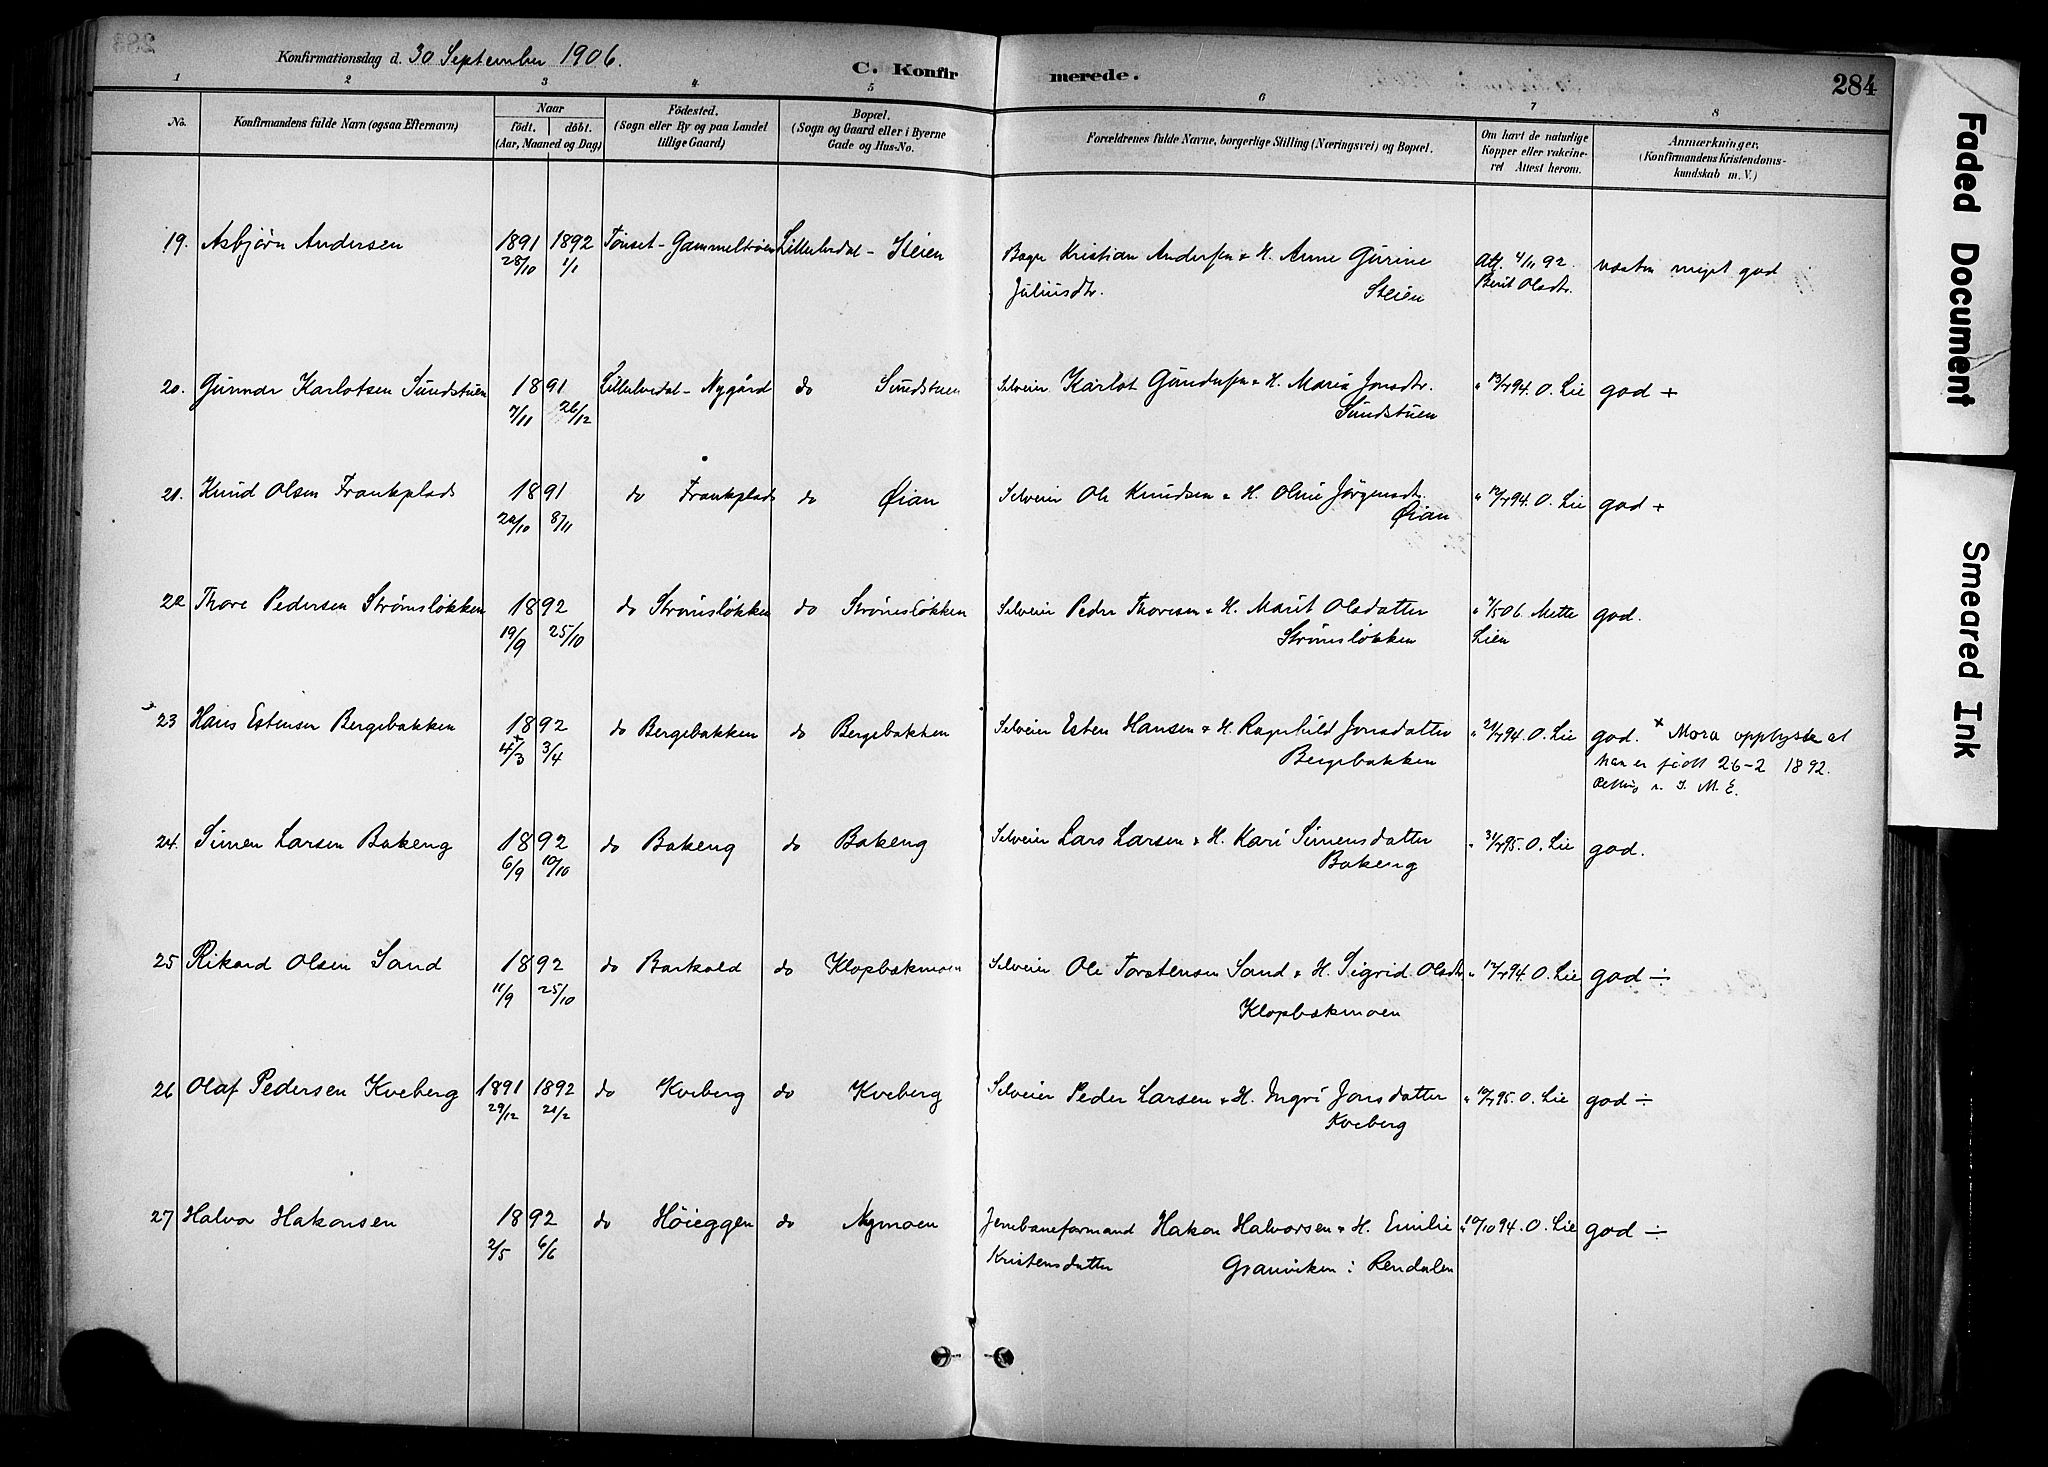 283
Konfirmationsdag d. 30 September 1906.
C. Konfirmerede.
284
1 2 3 4 5 6 7 8
No.
Konfirmandens fulde Navn (ogsaa Efternavn)
Naar
födt. döbt.
(Aar, Maaned og Dag)
Födested.
(Sogn eller By og paa Landet
tillige Gaard)
Bopæl.
(Sogn og Gaard eller i Byerne
Gade og Hus-No.
Forældrenes fulde Navne, borgerlige Stilling (Næringsvei) og Bopæl.
Om havt de naturlige
Kopper eller vakcine-
ret Attest herom.
Anmærkninger.
(Konfirmandens Kristendoms-
kundskab m. V.)
19. Asbjørn Andersen 1891 1892 Tønset - Gammeltrøen Lilleelvedal - Steien
28/10 1/1
Kristian Andersen & H. Anne Gurine
Juliusdtr. Steien
Att. 4/11 92.
Berit Olsdtr.
næsten meget god
20. Gunnar Karlotsen Sundstuen 1891 Lilleelvedal - Nygård do Sundstuen
7/11 26/12
Selveier Karlot Gundersen & H. Maria Jonsdtr.
Sundstuen
" 13/7 94. O. Lie god +
21. Knud Olsen Frankplads 1891 do Frankplads do Øian
20/10 8/11
Selveier Ole Knudsen & H. Oline Jörgensdtr.
Øian
" 12/7 94. O. Lie god +
22 Thore Pedersen Strömsløkken 1892 do Strömsløkken do Strömsløkken
19/9 25/10
Selveier Peder Thoresen & H. Marit Olsdatter
Strömsløkken
" 7/5 06. Mette
Lien
god.
23 Hans Estensen Bergebakken 1892 do Bergebakken do Bergebakken
+
4/3 3/4
Selveier Esten Hansen & H. Ragnhild Jonsdatter
Bergebakken
" 21/7 94. O. Lie god. + Mora opplyste at
han er født 26-2 1892.
24. Simen Larsen Bakeng 1892 do Bakeng do Bakeng
6/9 10/10
Selveier Lars Larsen & H. Kari Simensdatter
Bakeng
" 31/7 95. O. Lie god.
25 Rikard Olsen Sand 1892 do Barkald do Klopbækmoen
11/9 25/10
Selveier Ole Torstensen Sand & H. Sigrid Olsdtr.
Klopbækmoen
" 17/7 94. O. Lie god ÷
26 Olaf Pedersen Kveberg 1891 1892 do Kveberg do Kveberg
29/12 21/2
Selveier Peder Larsen & H. Ingri Jonsdatter
Kveberg
" 19/7 95. O. Lie god ÷
27 Halvor Hakonsen 1892 do Höieggen do Nymoen
2/5 6/6
Jernbaneformand Hakon Halvorsen & H. Emilie
Kristensdatter Granviken i Rendalen
" 10/10 94. O. Lie god ÷
Faded Document
Smeared Ink